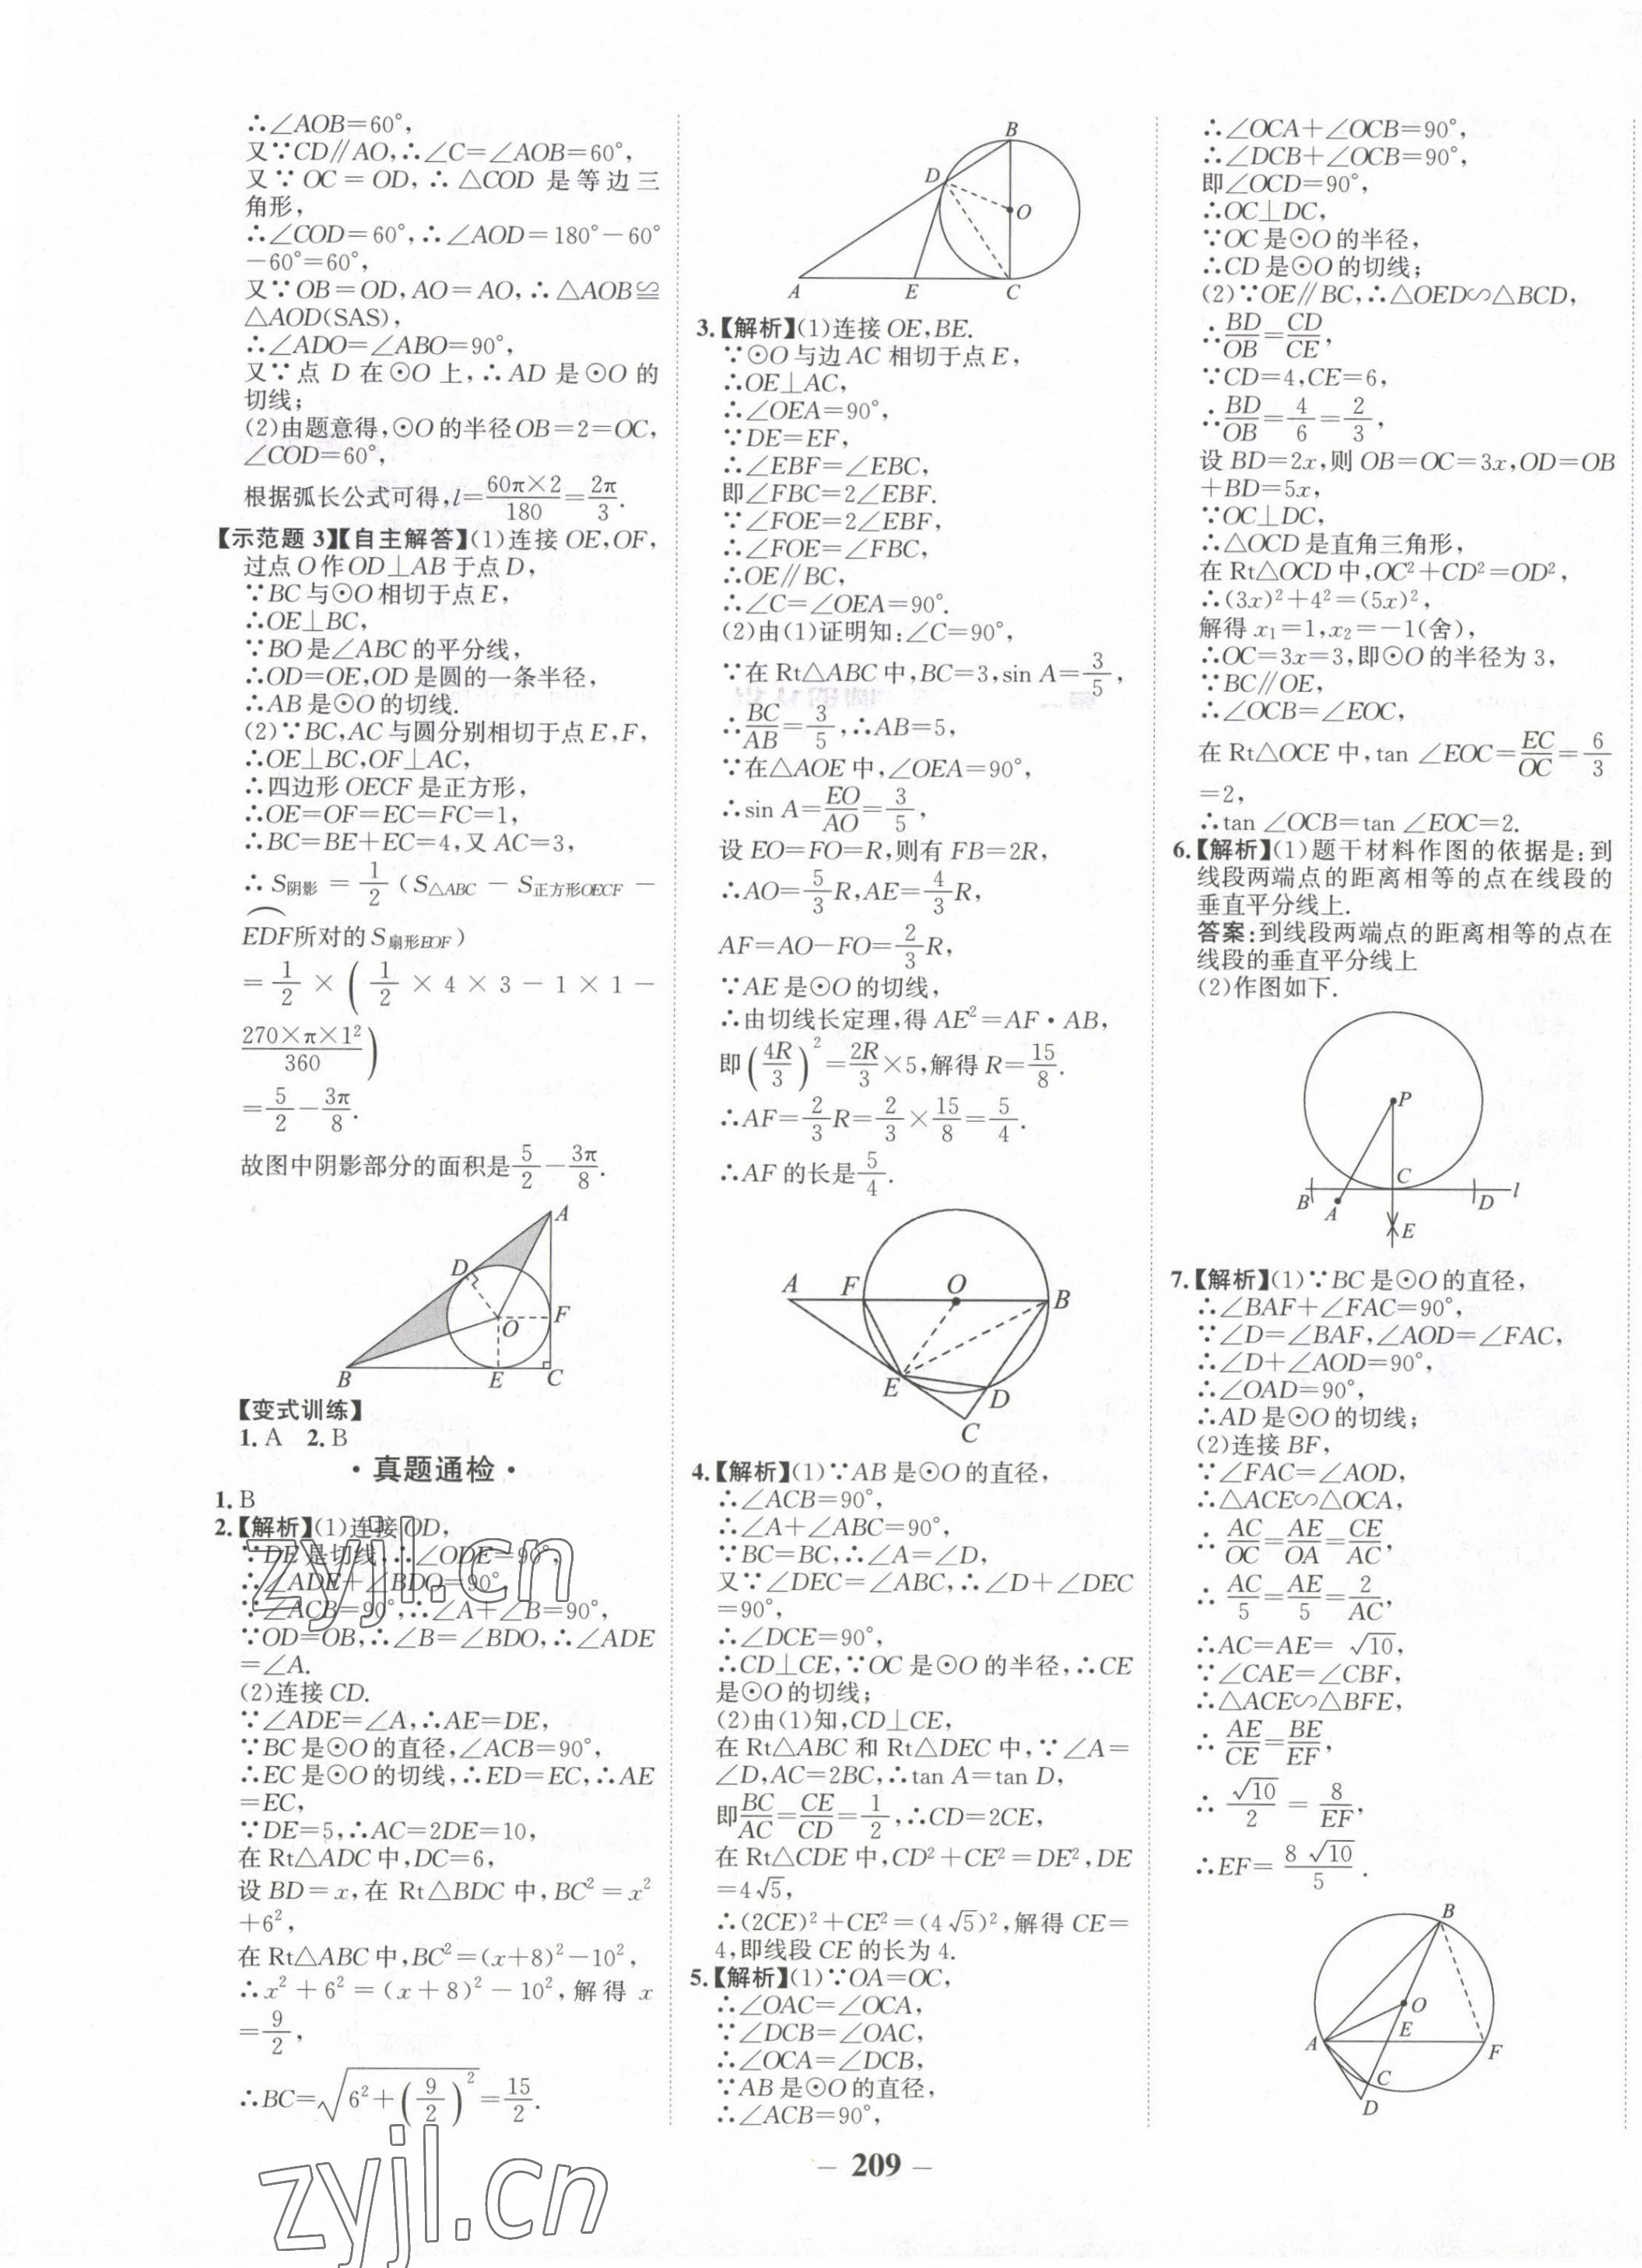 ∴∠AOB=60°,
又∵CD∥AO,∴∠C=∠AOB=60°,
又∵OC=OD,∴△COD 是等边三
角形,
∴∠COD=60°,∴∠AOD=180°-60°
-60°=60°,
又∵OB=OD,AO=AO,∴△AOB≌
△AOD(SAS),
∴∠ADO=∠ABO=90°,
又∵点 D 在⊙O 上,∴AD 是⊙O 的
切线;
(2)由题意得,⊙O的半径OB=2=OC,
∠COD=60°,
根据弧长公式可得,l=60π×2/180=2π/3.
【示范题 3】【自主解答】(1)连接 OE,OF,
过点O作OD⊥AB于点D,
∵BC与⊙O相切于点E,
∴OE⊥BC,
∵BO是∠ABC的平分线,
∴OD=OE,OD是圆的一条半径,
∴AB是⊙O的切线.
(2)∵BC,AC与圆分别相切于点E,F,
∴OE⊥BC,OF⊥AC,
∴四边形OECF是正方形,
∴OE=OF=EC=FC=1,
∴BC=BE+EC=4,又AC=3,
∴S阴影=1/2(S△ABC-S正方形OECF-
EDF所对的S扇形EOF)
=1/2×(1/2×4×3-1×1-
270×π×1²/360)
=5/2-3π/8.
故图中阴影部分的面积是5/2-3π/8.
A
D
F
O
B
E
C
【变式训练】
1. A 2. B
·真题通检·
1. B
2.【解析】(1)连接OD,
∵DE是切线,∴∠ODE=90°,
∴∠ADE+∠BDO=90°
∵∠ACB=90°,∴∠A+∠B=90°,
∵OD=OB,∴∠B=∠BDO,∴∠ADE
=∠A.
(2)连接CD.
∵∠ADE=∠A,∴AE=DE,
∵BC是⊙O的直径,∠ACB=90°,
∴EC是⊙O的切线,∴ED=EC,∴AE
=EC,
∵DE=5,∴AC=2DE=10,
在Rt△ADC中,DC=6,
设BD=x,在 Rt△BDC 中,BC²=x²
+6²,
在Rt△ABC中,BC²=(x+8)²-10²,
∴x²+6²=(x+8)²-10²,解得 x
=9/2,
∴BC=√(6²+(9/2)²)=15/2.
zyjl.cn
zyjl.cn
B
D
O
A
E
C
3.【解析】(1)连接OE,BE.
∵⊙O与边AC相切于点E,
∴OE⊥AC,
∴∠OEA=90°,
∵DE=EF,
∴∠EBF=∠EBC,
即∠FBC=2∠EBF.
∵∠FOE=2∠EBF,
∴∠FOE=∠FBC,
∴OE∥BC,
∴∠C=∠OEA=90°.
(2)由(1)证明知:∠C=90°,
∵在Rt△ABC中,BC=3,sin A=3/5,
∴BC/AB=3/5,∴AB=5,
∵在△AOE中,∠OEA=90°,
∴sin A=EO/AO=3/5,
设EO=FO=R,则有FB=2R,
∴AO=5/3R,AE=4/3R,
AF=AO-FO=2/3R,
∵AE是⊙O的切线,
∴由切线长定理,得AE²=AF·AB,
即(4R/3)²=2R/3×5,解得R=15/8.
∴AF=2/3R=2/3×15/8=5/4.
∴AF的长是5/4.
A
F
O
B
E
D
C
4.【解析】(1)∵AB是⊙O的直径,
∴∠ACB=90°,
∴∠A+∠ABC=90°,
∵BC=BC,∴∠A=∠D,
又∵∠DEC=∠ABC,∴∠D+∠DEC
=90°,
∴∠DCE=90°,
∴CD⊥CE,∵OC是⊙O的半径,∴CE
是⊙O的切线;
(2)由(1)知,CD⊥CE,
在Rt△ABC和Rt△DEC中,∵∠A=
∠D,AC=2BC,∴tan A=tan D,
即BC/AC=CE/CD=1/2,∴CD=2CE,
在Rt△CDE中,CD²+CE²=DE²,DE
=4√5,
∴(2CE)²+CE²=(4√5)²,解得CE=
4,即线段CE的长为4.
5.【解析】(1)∵OA=OC,
∴∠OAC=∠OCA,
∵∠DCB=∠OAC,
∴∠OCA=∠DCB,
∵AB是⊙O的直径,
∴∠ACB=90°,
∴∠OCA+∠OCB=90°,
∴∠DCB+∠OCB=90°,
即∠OCD=90°,
∴OC⊥DC,
∵OC是⊙O的半径,
∴CD是⊙O的切线;
(2)∵OE∥BC,∴△OED∽△BCD,
∴BD/OB=CD/CE,
∵CD=4,CE=6,
∴BD/OB=4/6=2/3,
设BD=2x,则OB=OC=3x,OD=OB
+BD=5x,
∵OC⊥DC,
∴△OCD是直角三角形,
在Rt△OCD中,OC²+CD²=OD²,
∴(3x)²+4²=(5x)²,
解得x₁=1,x₂=-1(舍),
∴OC=3x=3,即⊙O的半径为3,
∵BC∥OE,
∴∠OCB=∠EOC,
在Rt△OCE中,tan ∠EOC=EC/OC=6/3
=2,
∴tan ∠OCB=tan ∠EOC=2.
6.【解析】(1)题干材料作图的依据是:到
线段两端点的距离相等的点在线段的
垂直平分线上.
答案:到线段两端点的距离相等的点在
线段的垂直平分线上
(2)作图如下.
P
C
B
A
D
l
E
7.【解析】(1)∵BC是⊙O的直径,
∴∠BAF+∠FAC=90°,
∵∠D=∠BAF,∠AOD=∠FAC,
∴∠D+∠AOD=90°,
∴∠OAD=90°,
∴AD是⊙O的切线;
(2)连接BF,
∵∠FAC=∠AOD,
∴△ACE∽△OCA,
∴AC/OC=AE/OA=CE/AC,
∴AC/5=AE/5=2/AC,
∴AC=AE=√10,
∵∠CAE=∠CBF,
∴△ACE∽△BFE,
∴AE/CE=BE/EF,
∴√10/2=8/EF,
∴EF=8√10/5.
B
O
E
A
F
C
D
— 209 —